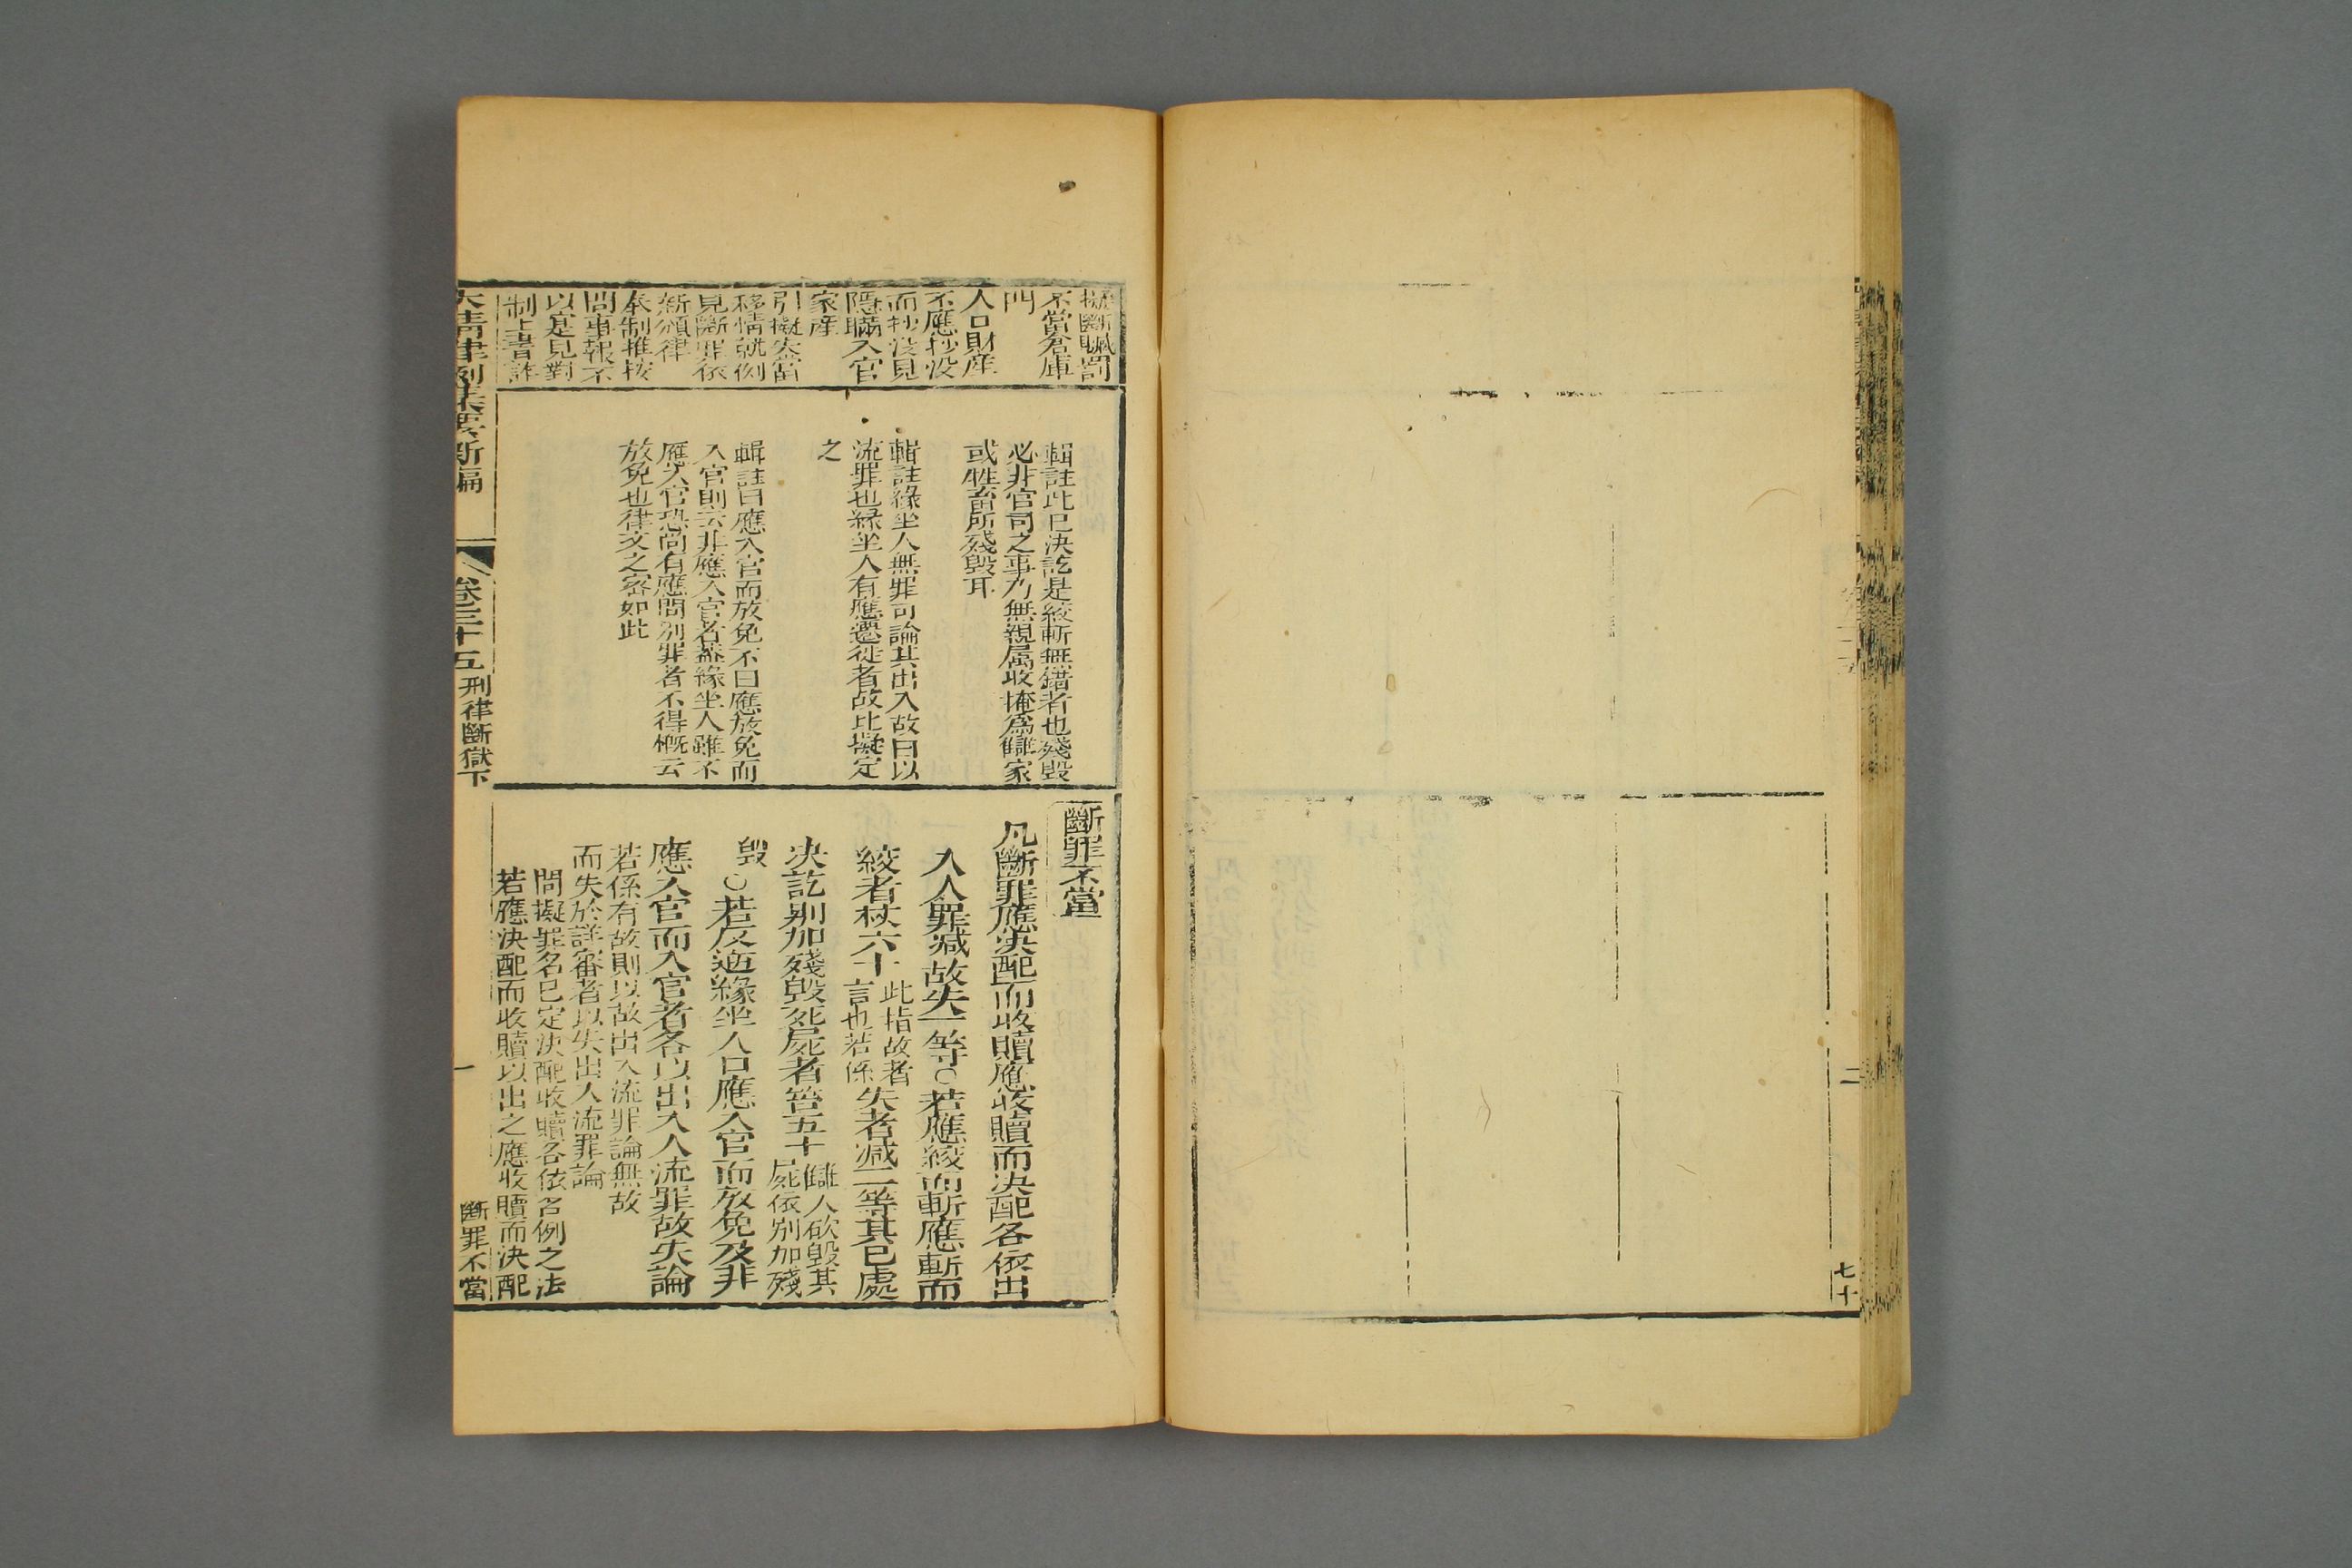 二
七十
擬斷贓罰
不當倉庫
門
人口財産
不應抄没
而抄没見
隱瞞入官
家産
引擬失當
移情就例
見斷罪依
新頒律
奉制推按
問事報不
以寔見對
制上書詐
輯註此已決訖是絞斬無錯者也殘毀
必非官司之事乃無親属收掩爲讎家
或牲畜所殘毀耳
輯註緣坐人無罪可論其出入故曰以
流罪也緣坐人有應遷徙者故比擬定
之
輯註曰應入官而放免不曰應放免而
入官則云非應入官者蓋緣坐人雖不
應入官恐尚有應問別罪者不得槪云
放免也律文之密如此
斷罪不當
凡斷罪應決配而收贖應收贖而決配各依出
入人罪減故失一等○若應絞而斬應斬而
絞者杖六十此指故者言也若係失者减二等其已處
决訖别加殘毀死屍者笞五十讎人砍毀其屍依别加殘
毀○若反逆緣坐人口應入官而放免及非
應入官而入官者各以出入人流罪故失論
若係有故則以故出入流罪論無故
而失於詳審者以失出入流罪論
問擬罪名已定決配收贖各依名例之法
若應決配而收贖以出之應收贖而決配
大清律例集要新編
卷三十五
刑律斷獄下
一
斷罪不當